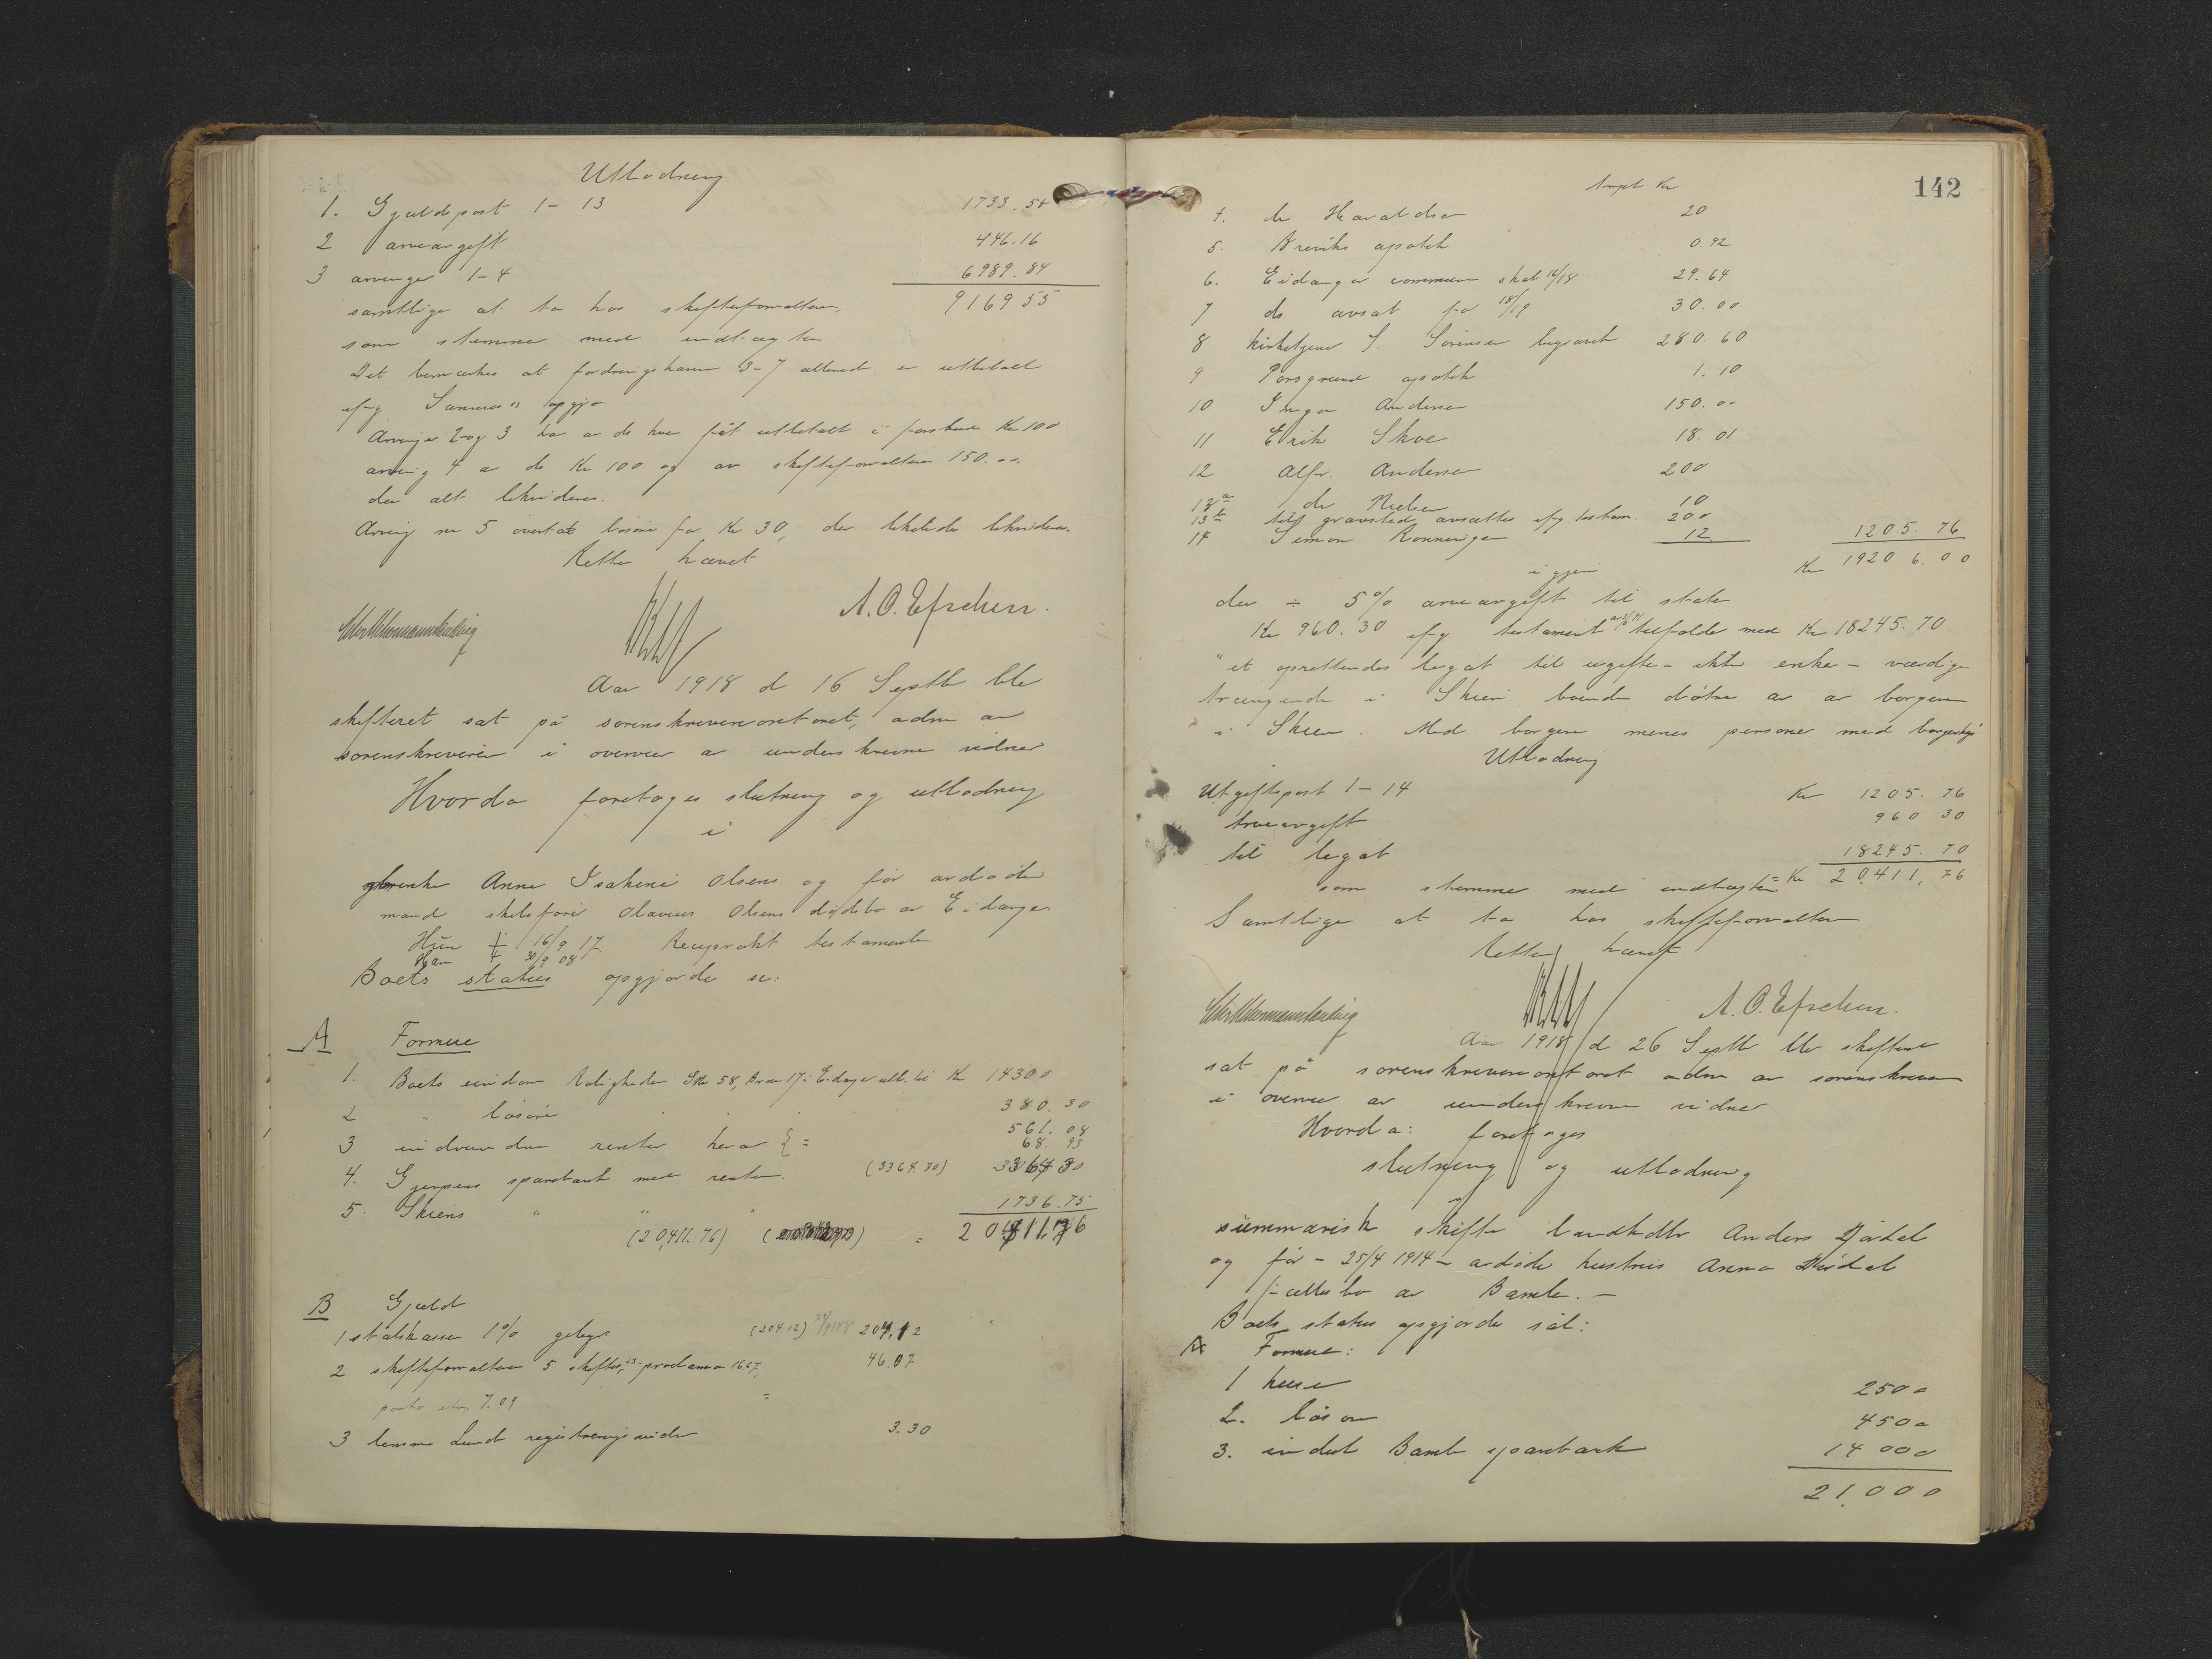 Utlodning
1. Gjeldspost 1 - 13 1733.54
2 arveavgift 446.16
3 arvinger 1-4 6989.84
samtlige at ta hos skifteforvalteren, 9169 55
som stemmer med indtægten
Det bemærkes at fordringshaverne 3-7 allerede er utbetalt
ifg opgjør
Arvinger 2 og 3 har av do hver fåt utbetalt i forskud Kr 100
arving 4 av do Kr 100 og av skifteforvalteren 150.00
der alt likvideres.
Arving nr 5 overtat løsøre for Kr 30, der likeledes likvideres.
Retten hævet
Aar 1918 d 16 Septb ble
skifteret sat på sorenskriverkontoret, adm av
sorenskriveren i overvær av underskrevne vidner
Hvorda foretoges slutning og utlodning
i
enke Anne Isakine Olsens og før avdøde
mand skibsfører Olavus Olsens dødsbo av Eidanger
Hun ‡ 16/9 17. Reciprokt testamente.
Han ‡ 30/9 08
Boets status opgjordes så:
A Formue
1. Boets eiendom Gno 58, Bno 17 i Eidanger utb. til Kr 14300
2 " løsøre 380.30
3 inddrevne renter herav { = 561.08
68.93
4. Gjerpens sparebank med renter (3364.30) 3364 30
5. Skiens " " " 1736.75
(20,411.76) = 20411.76
B Gjeld
1 statskassen 1% gebyr (204.12) 204.12
2 skifteforvalteren 5 skiftes, proclama 16.67, 46.07
porto etc 7.09 =
3 lensm Lund registreringsvidn 3.30
142
trpt Kr
4. dr Haraldsen 20
5. Breviks apotek 0.92
6. Eidanger commune skat 17/18 29.64
7 do avsat for 18/19 30.00
8 kirketjener S. Sørensen begravelse 280.60
9 Porsgrund apotek 1.10
10 Inga Andersen 150.00
11 Erik Skoe 18.01
12 Alfr. Andersen 200
13a dr Nielsen 10
13b til gravsted avsættes ifg testam. 200
14 Simon Rønningen 12. 1205.76
igjen Kr 19206.00
der ÷ 5% arveavgift til staten
Kr 960.30 ifg testament tilfalder med Kr 18245.70
"et oprettendes legat til ugifte - ikke enker - værdige
trængende i Skien boende døtre av av borgere
i Skien. Med borgere menes personer med borgerskap
Utlodning
Utgiftspost 1 - 14 Kr 1205.76
Arveavgift 960 30
til legat 18245.70
som stemmer med indtægten = Kr 20,411,76
Samtlige at ta hos skifteforvalteren
Retten hævet
Aar 1918 d 26 Septb blev skifteret
sat på sorenskriverkontoret adm av sorenskriveren
i overvær av underskrevne vidner
Hvorda: foretoges
slutning og utlodning
i
summarisk skifte landhdlr Anders
og før - 25/4 1914 - avdøde hustru Anna
fællesbo av Bamle. -
Boets status opgjordes så:
A Formue:
1 huse 2500
2. løsøre 4500
3. indest Bamle sparebank 14 000
21,000